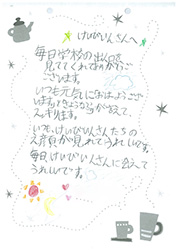 けいびいんさんへ
毎日学校の出入口を
見てくれてありがとうご
ございます。
いつも元気に
ます。
スッキリします。
いつも、けいびいんさんたちの
が見れてうれしいです。
毎日、けいびいんさんに会えて
うれしいです。